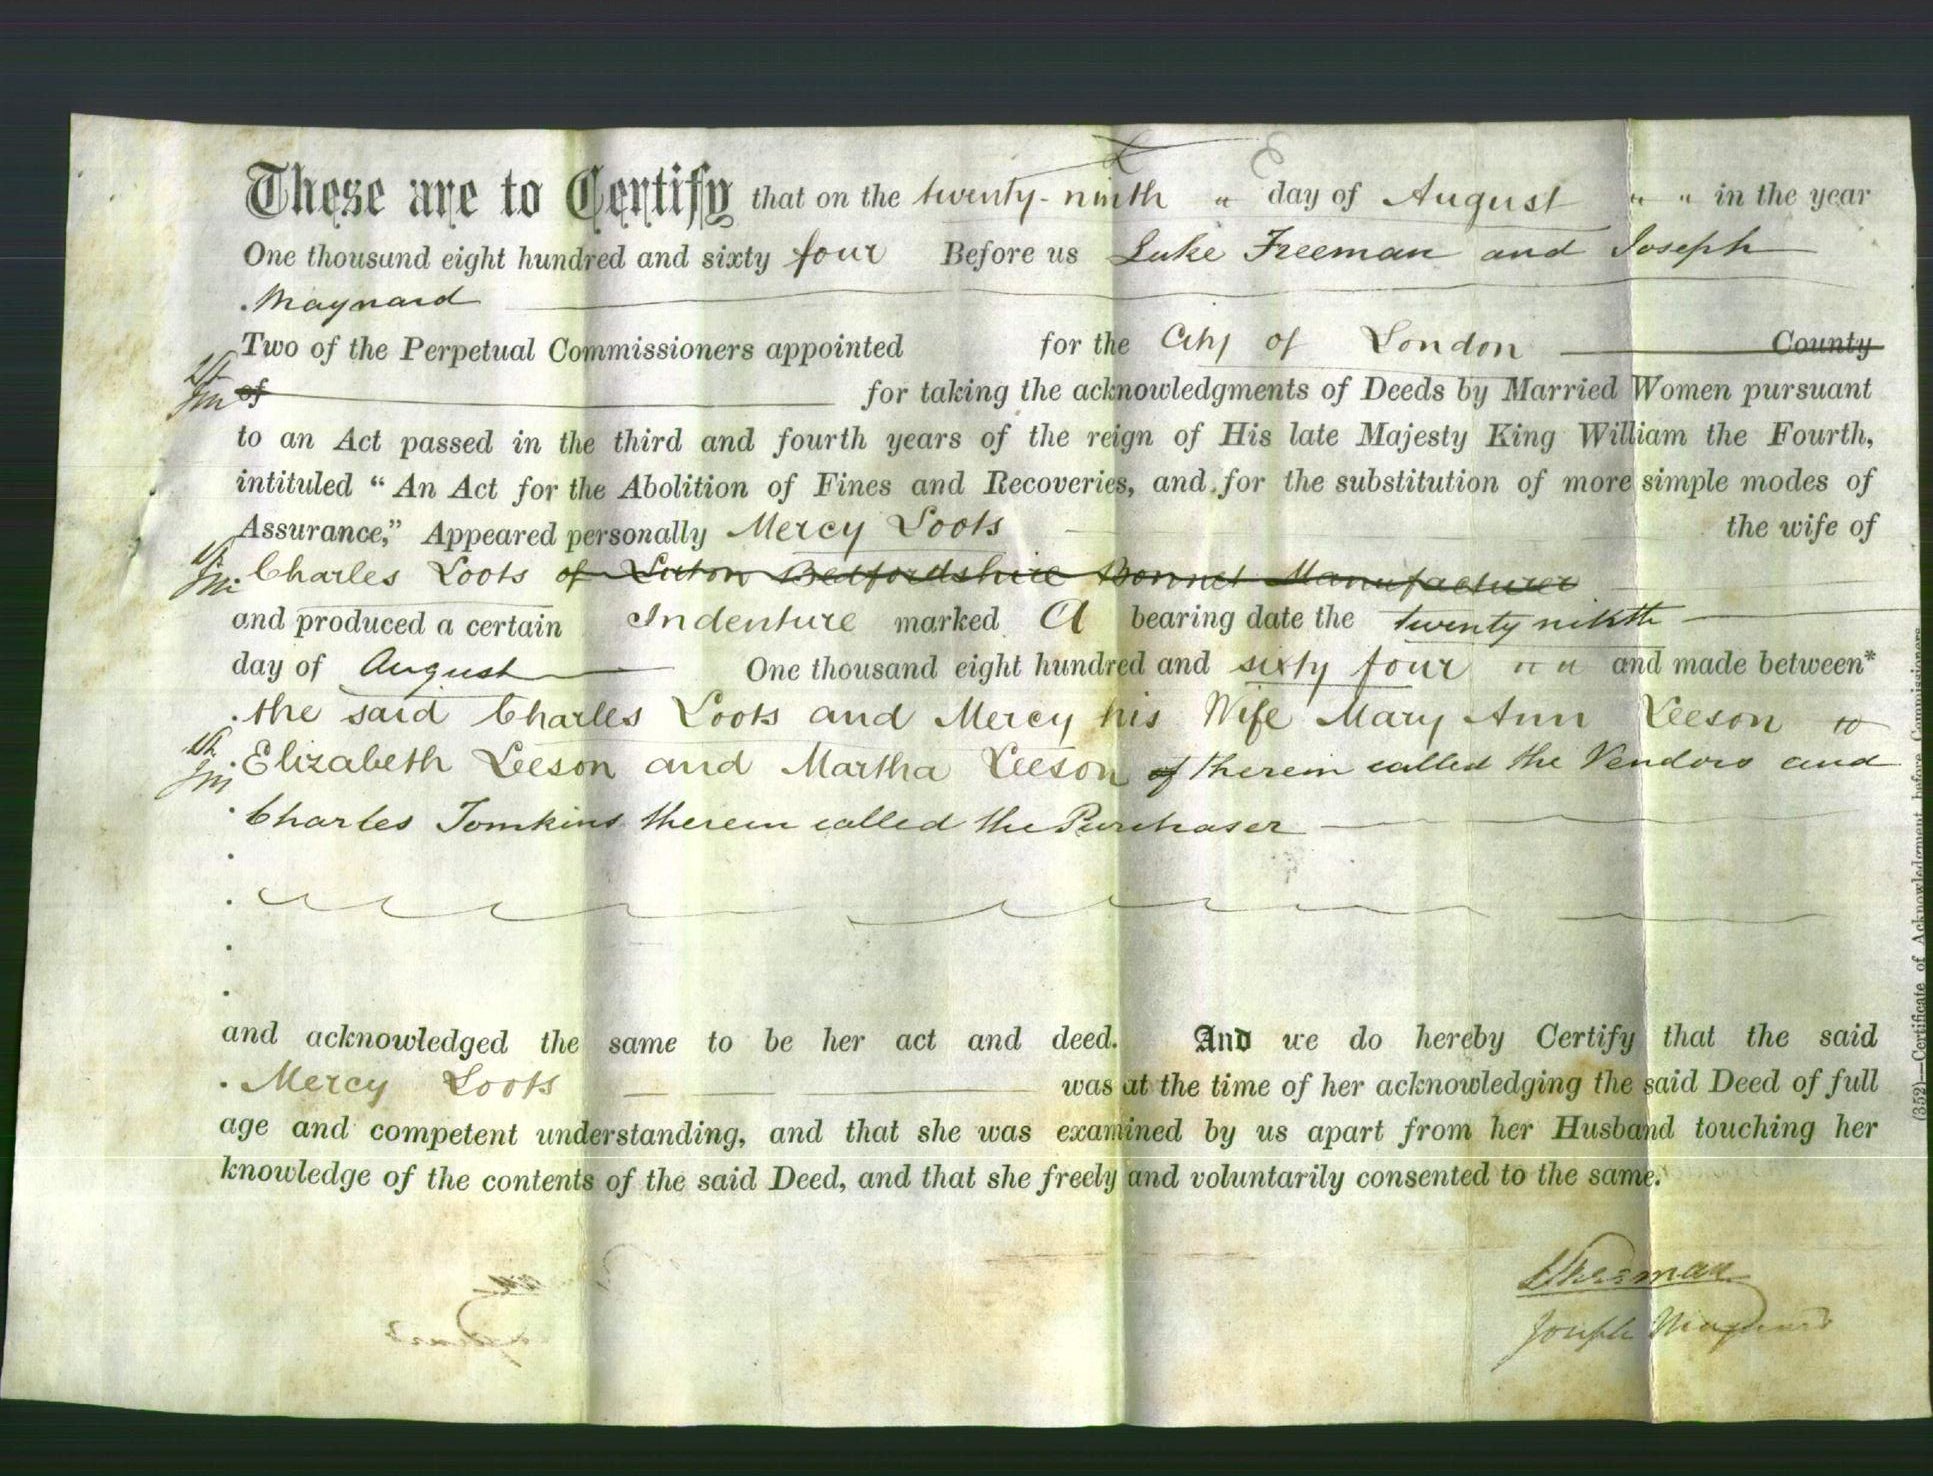 These are to Certify that on the twenty-ninth " day of August " " in the year
One thousand eight hundred and sixty four Before us Luke Freeman and Joseph
Maynard
Two of the Perpetual Commissioners appointed for the City of London County
of for taking the acknowledgments of Deeds by Married Women pursuant
to an Act passed in the third and fourth years of the reign of His late Majesty King William the Fourth,
intituled “An Act for the Abolition of Fines and Recoveries, and for the substitution of more simple modes of
Assurance,” Appeared personally Mercy Loots the wife of
Charles Loots of Luton Bedfordshire Bonnet Manufacturer
and produced a certain Indenture marked A bearing date the twenty ninth
day of August One thousand eight hundred and sixty four " " and made between*
the said Charles Loots and Mercy his Wife Mary Ann Leeson
Elizabeth Leeson and Martha Leeson of therein called the Vendors and
Charles Tomkins therein called the Purchaser
and acknowledged the same to be her act and deed. And we do hereby Certify that the said
Mercy Loots was at the time of her acknowledging the said Deed of full
age and competent understanding, and that she was examined by us apart from her Husband touching her
knowledge of the contents of the said Deed, and that she freely and voluntarily consented to the same.
L Freeman
Joseph Maynard
(352)—Certificate of Acknowledgment before Commissioners